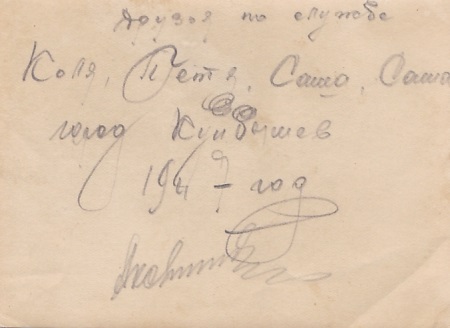 Друзья по службе
Коля, Петя, Саша, Саша
город Куйбышев
1947 - год